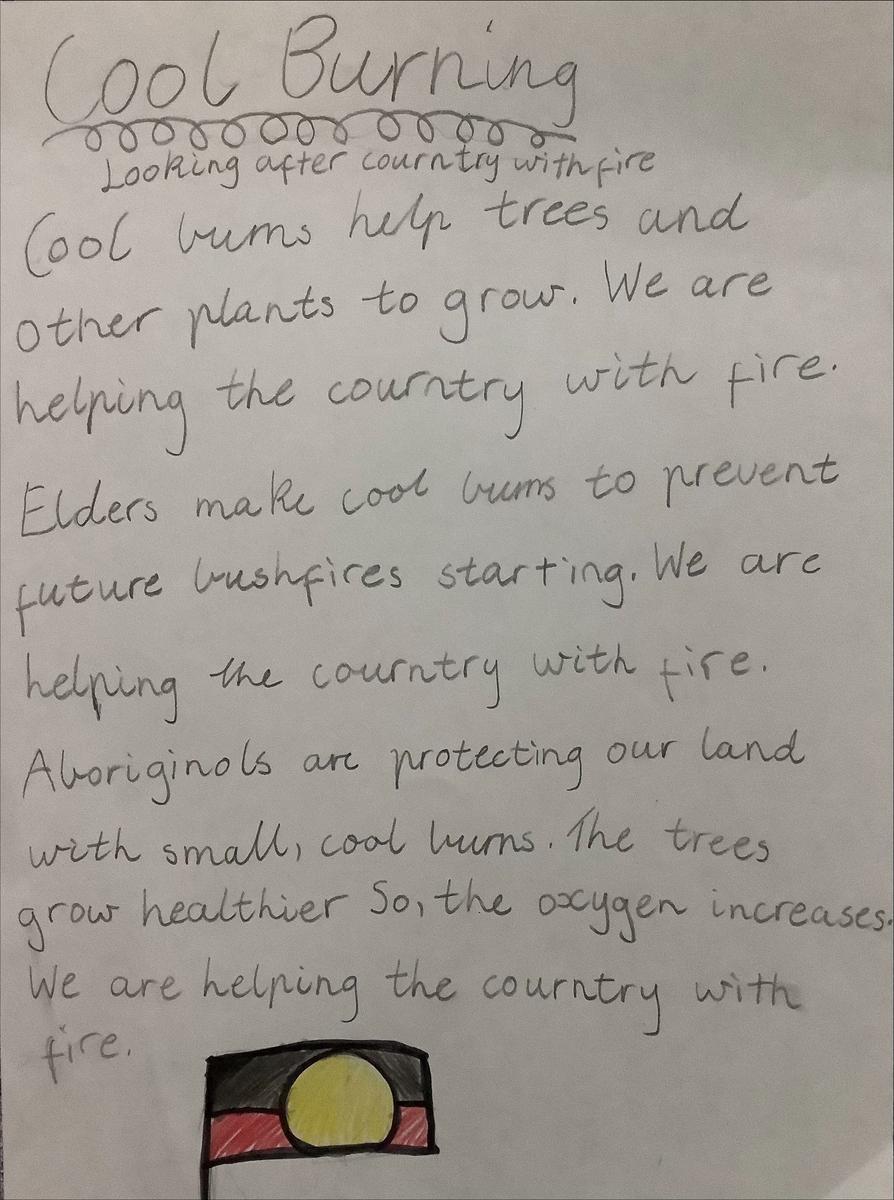 Cool Burning
Looking after courntry with fire
Cool burns help trees and
other plants to grow. We are
helping the courntry with fire.
Elders make cool burns to prevent
future bushfires starting. We are
helping the courntry with fire.
Aboriginols are protecting our land
with small, cool burns. The trees
grow healthier So, the oxygen increases.
We are helping the courntry with
fire.